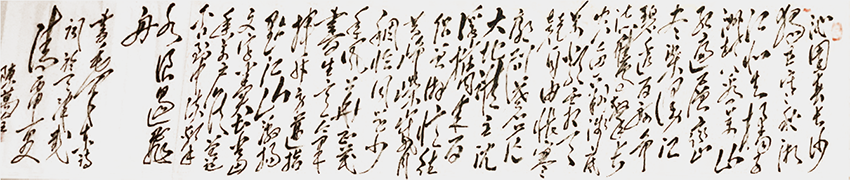 沁園春长沙
独立寒秋湘
江北去橘子
洲头看万山
红遍层林
尽染漫江
碧透百舸争
流鹰击长
空鱼翔浅底
万类霜天
竞自由怅寥
廓问苍茫
大地谁主沉
浮携来百
侣曾游忆往
昔峥嵘岁月
稠恰同学少
年風華正茂
書生意气
挥斥方遒指
点江山激扬
文字粪土当
年万户侯曾记
否到中流击
水浪遏飛
舟
書毛澤東詩
词於